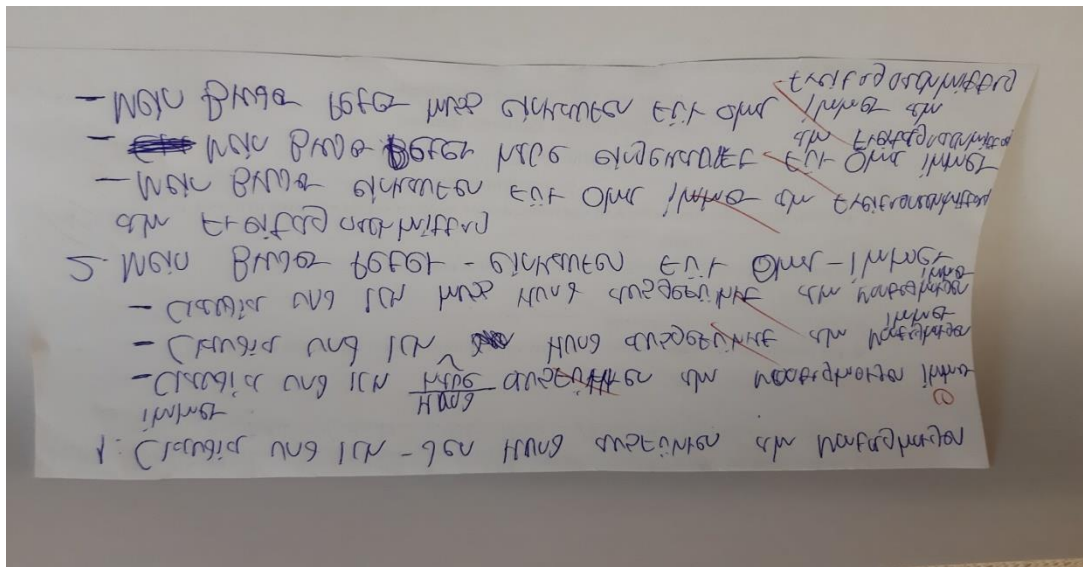 1. Claudia und ich - den Hund ausführen am Montagmorgen
immer
- Claudia und ich Hund muss ausführen am Montagmorgen immer
- Claudia und ich Hund ausgeführt am Montagmorgen
immer
- Claudia und ich muss Hund ausgeführt am Montagmorgen
immer
2. Mein Bruder Peter - einkaufen für Oma - immer
am Freitag nachmittag
- Mein Bruder einkaufen für Oma immer am Freitagnachmittag
- Mein Bruder Peter muss eingekauft für Oma immer
am Freitagnachmittag
- Mein Bruder Peter muss einkaufen für Oma immer am
Freitagnachmittag